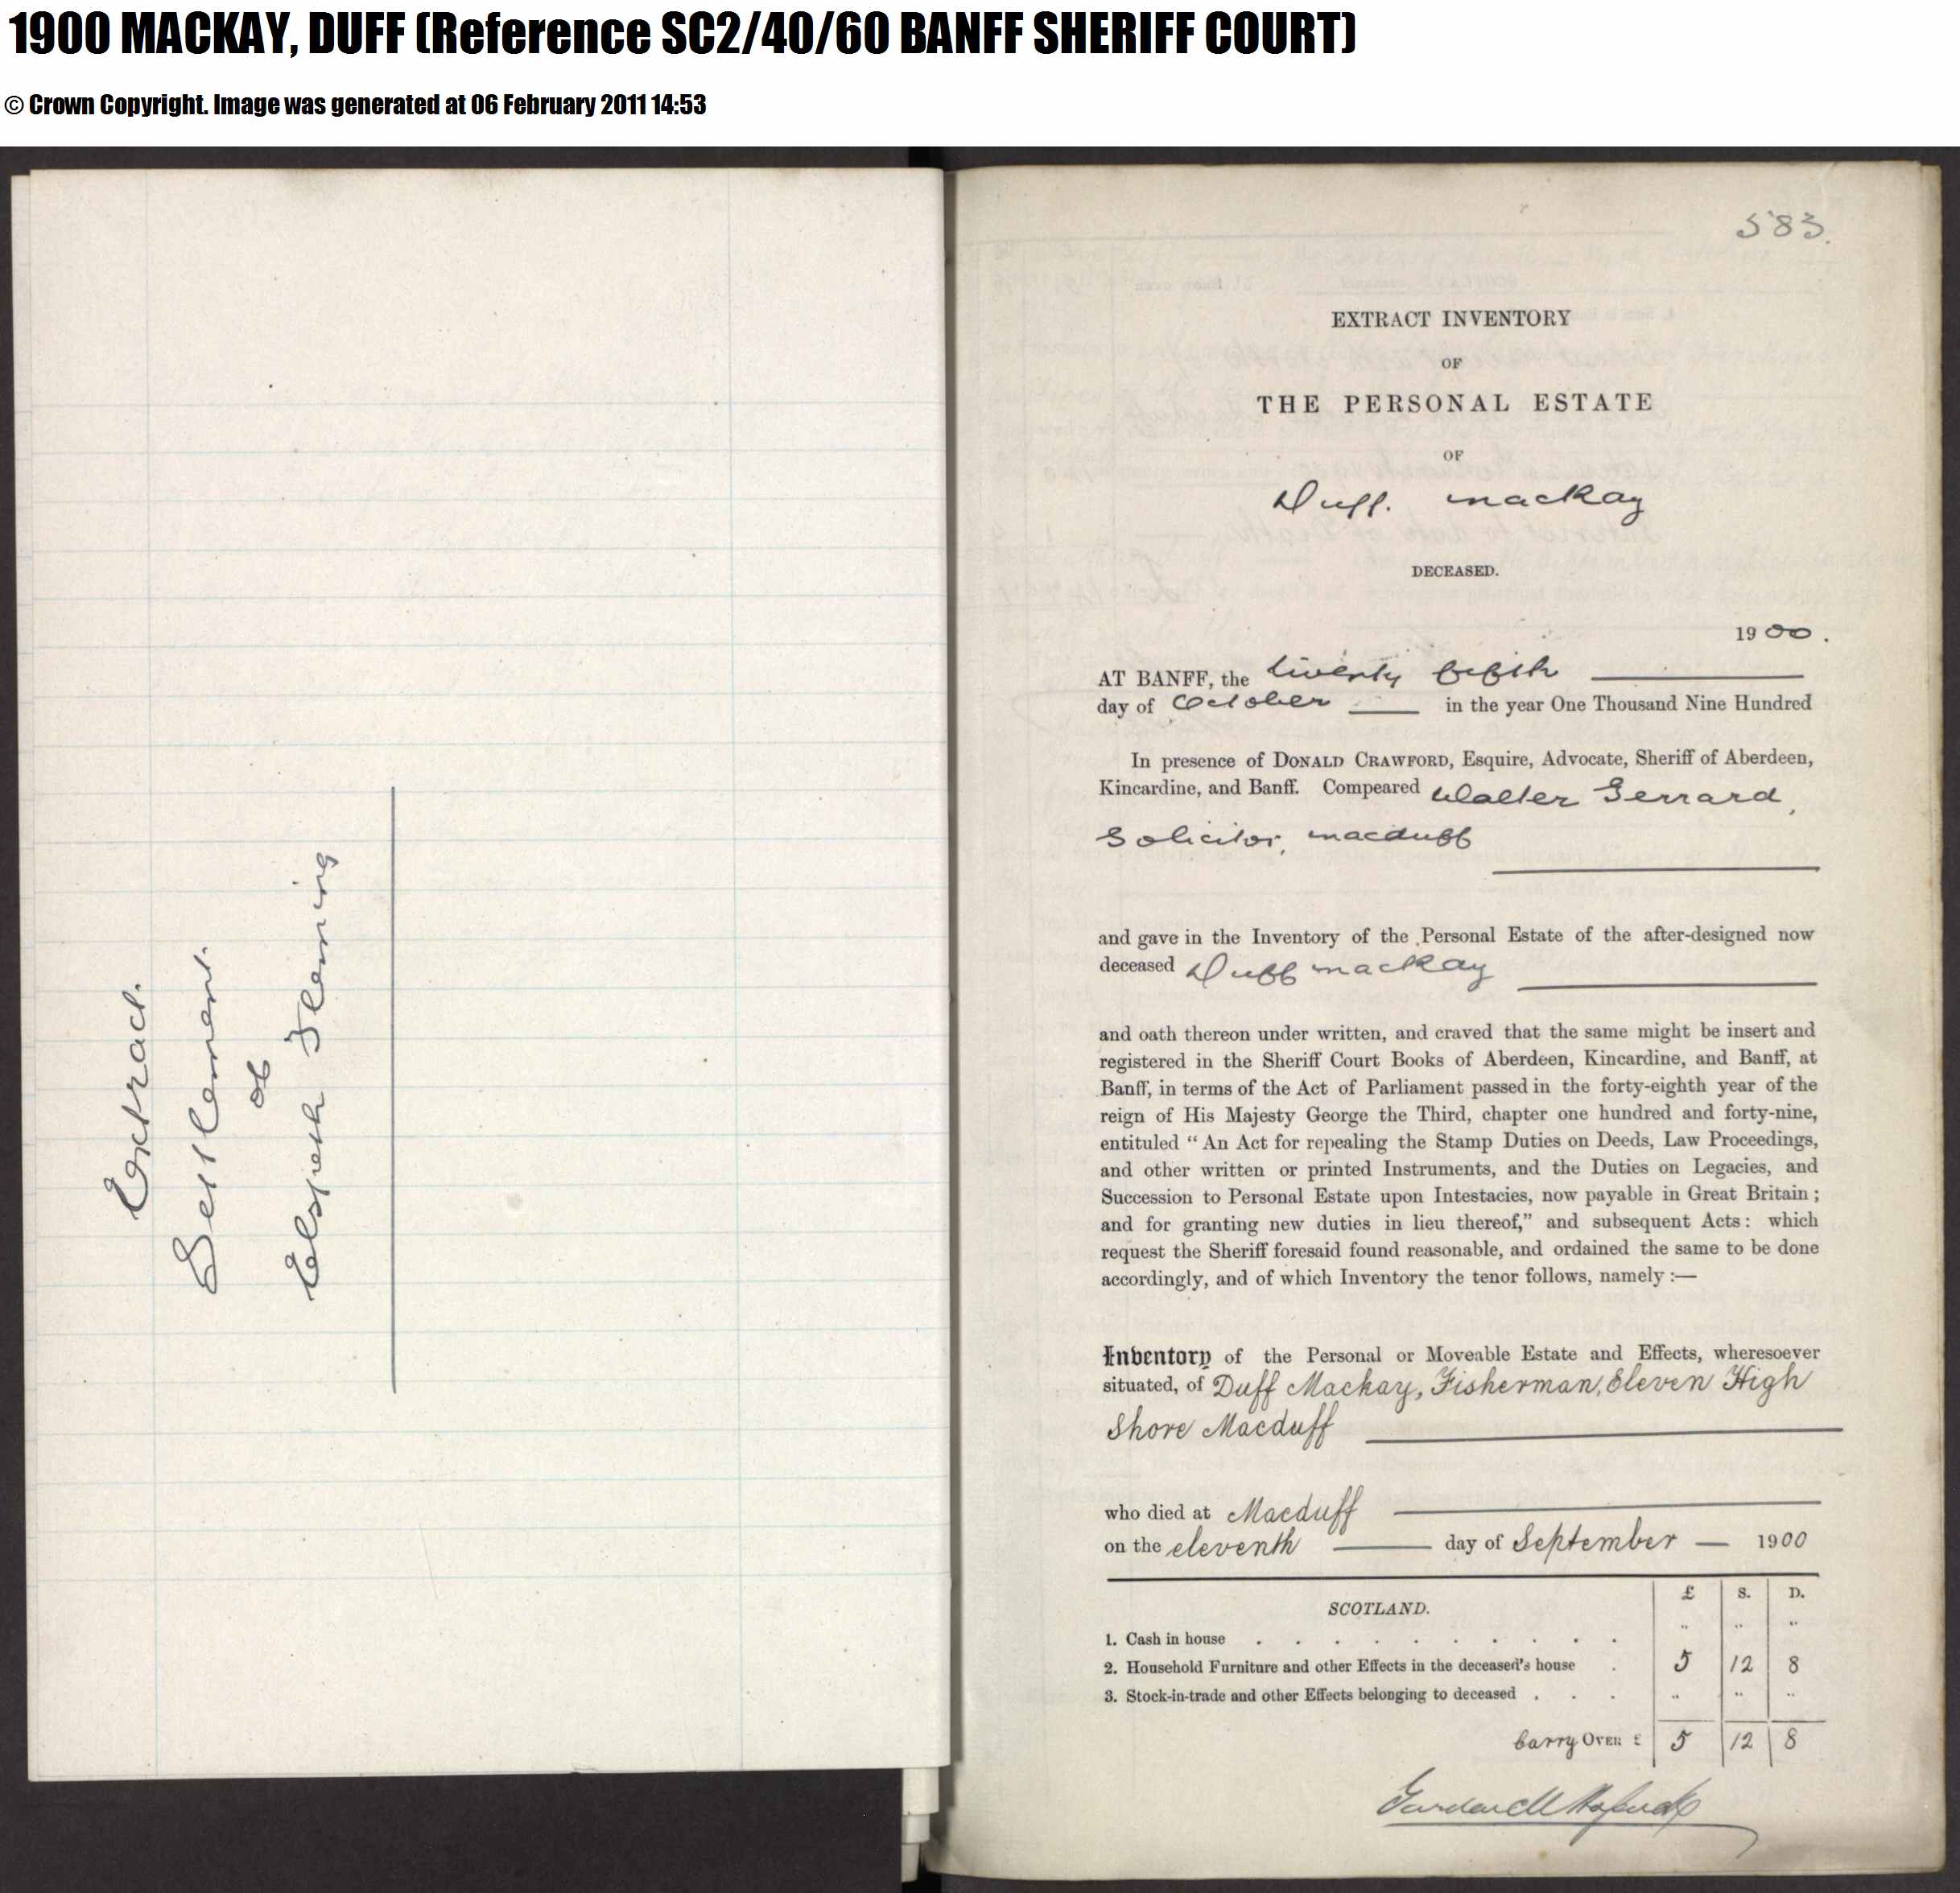 1900 MACKAY, DUFF (Reference SC2/40/60 BANFF SHERIFF COURT)
© Crown Copyright. Image was generated at 06 February 2011 14:53
Extract.
Settlement.
of
Elspeth Fleming
583.
EXTRACT INVENTORY
OF
THE PERSONAL ESTATE
OF
Duff. Mackay
DECEASED.
1900.
AT BANFF, the twenty fifth
day of October in the year One Thousand Nine Hundred
In presence of DONALD CRAWFORD, Esquire, Advocate, Sheriff of Aberdeen,
Kincardine, and Banff. Compeared Walter Gerrard,
Solicitor, Macduff
and gave in the Inventory of the Personal Estate of the after-designed now
deceased Duff Mackay
and oath thereon under written, and craved that the same might be insert and
registered in the Sheriff Court Books of Aberdeen, Kincardine, and Banff, at
Banff, in terms of the Act of Parliament passed in the forty-eighth year of the
reign of His Majesty George the Third, chapter one hundred and forty-nine,
entituled “ An Act for repealing the Stamp Duties on Deeds, Law Proceedings,
and other written or printed Instruments, and the Duties on Legacies, and
Succession to Personal Estate upon Intestacies, now payable in Great Britain ;
and for granting new duties in lieu thereof,” and subsequent Acts : which
request the Sheriff foresaid found reasonable, and ordained the same to be done
accordingly, and of which Inventory the tenor follows, namely :—
Inventory of the Personal or Moveable Estate and Effects, wheresoever
situated, of Duff Mackay, Fisherman, Eleven High
Shore Macduff
who died at Macduff
on the eleventh day of September — 1900
£ S. D.
SCOTLAND.
1. Cash in house . . . . . . . . . . " " "
2. Household Furniture and other Effects in the deceased's house . 5 12 8
3. Stock-in-trade and other Effects belonging to deceased . . . " " "
Carry OVER £ 5 12 8